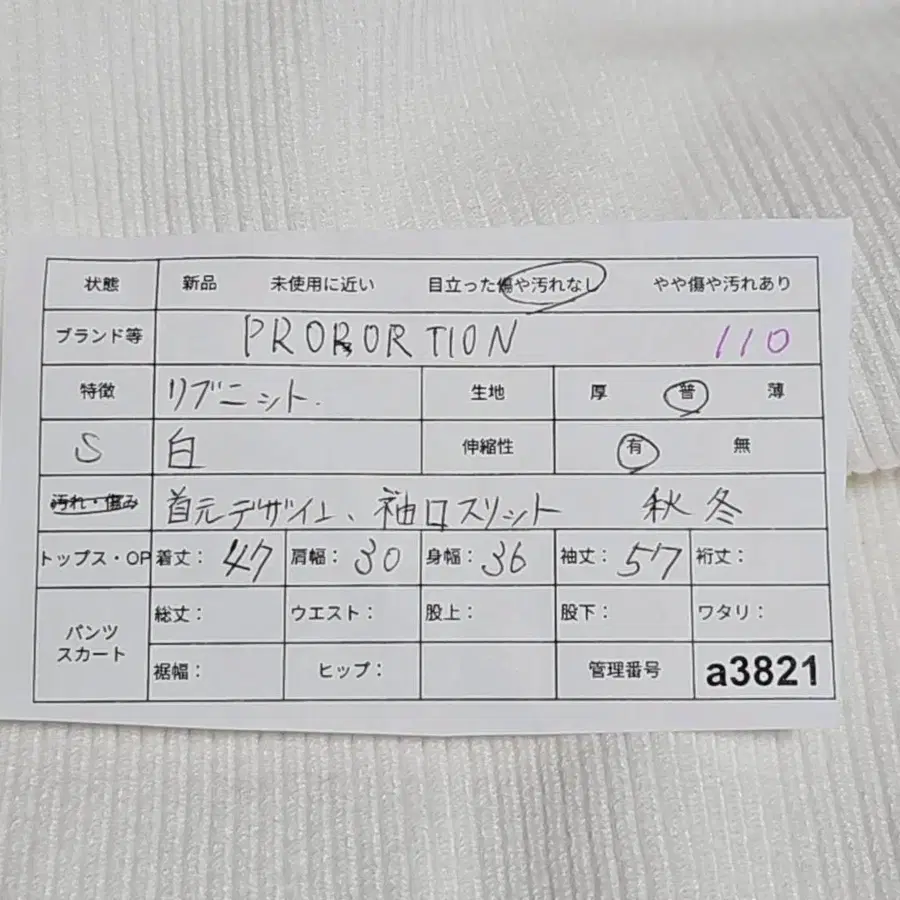 状態 新品 未使用に近い 目立った傷や汚れなし やや傷や汚れあり
ブランド等 PROPORTION 110
特徴 リブニット. 生地 厚 普 薄
S 白 伸縮性 有 無
汚れ・傷み 首元デザイン、袖口スリット 秋冬
トップス・OP 着丈: 47 肩幅: 30 身幅: 36 袖丈: 57 裄丈:
パンツ スカート 総丈: ウエスト: 股上: 股下: ワタリ:
裾幅: ヒップ: 管理番号 a3821